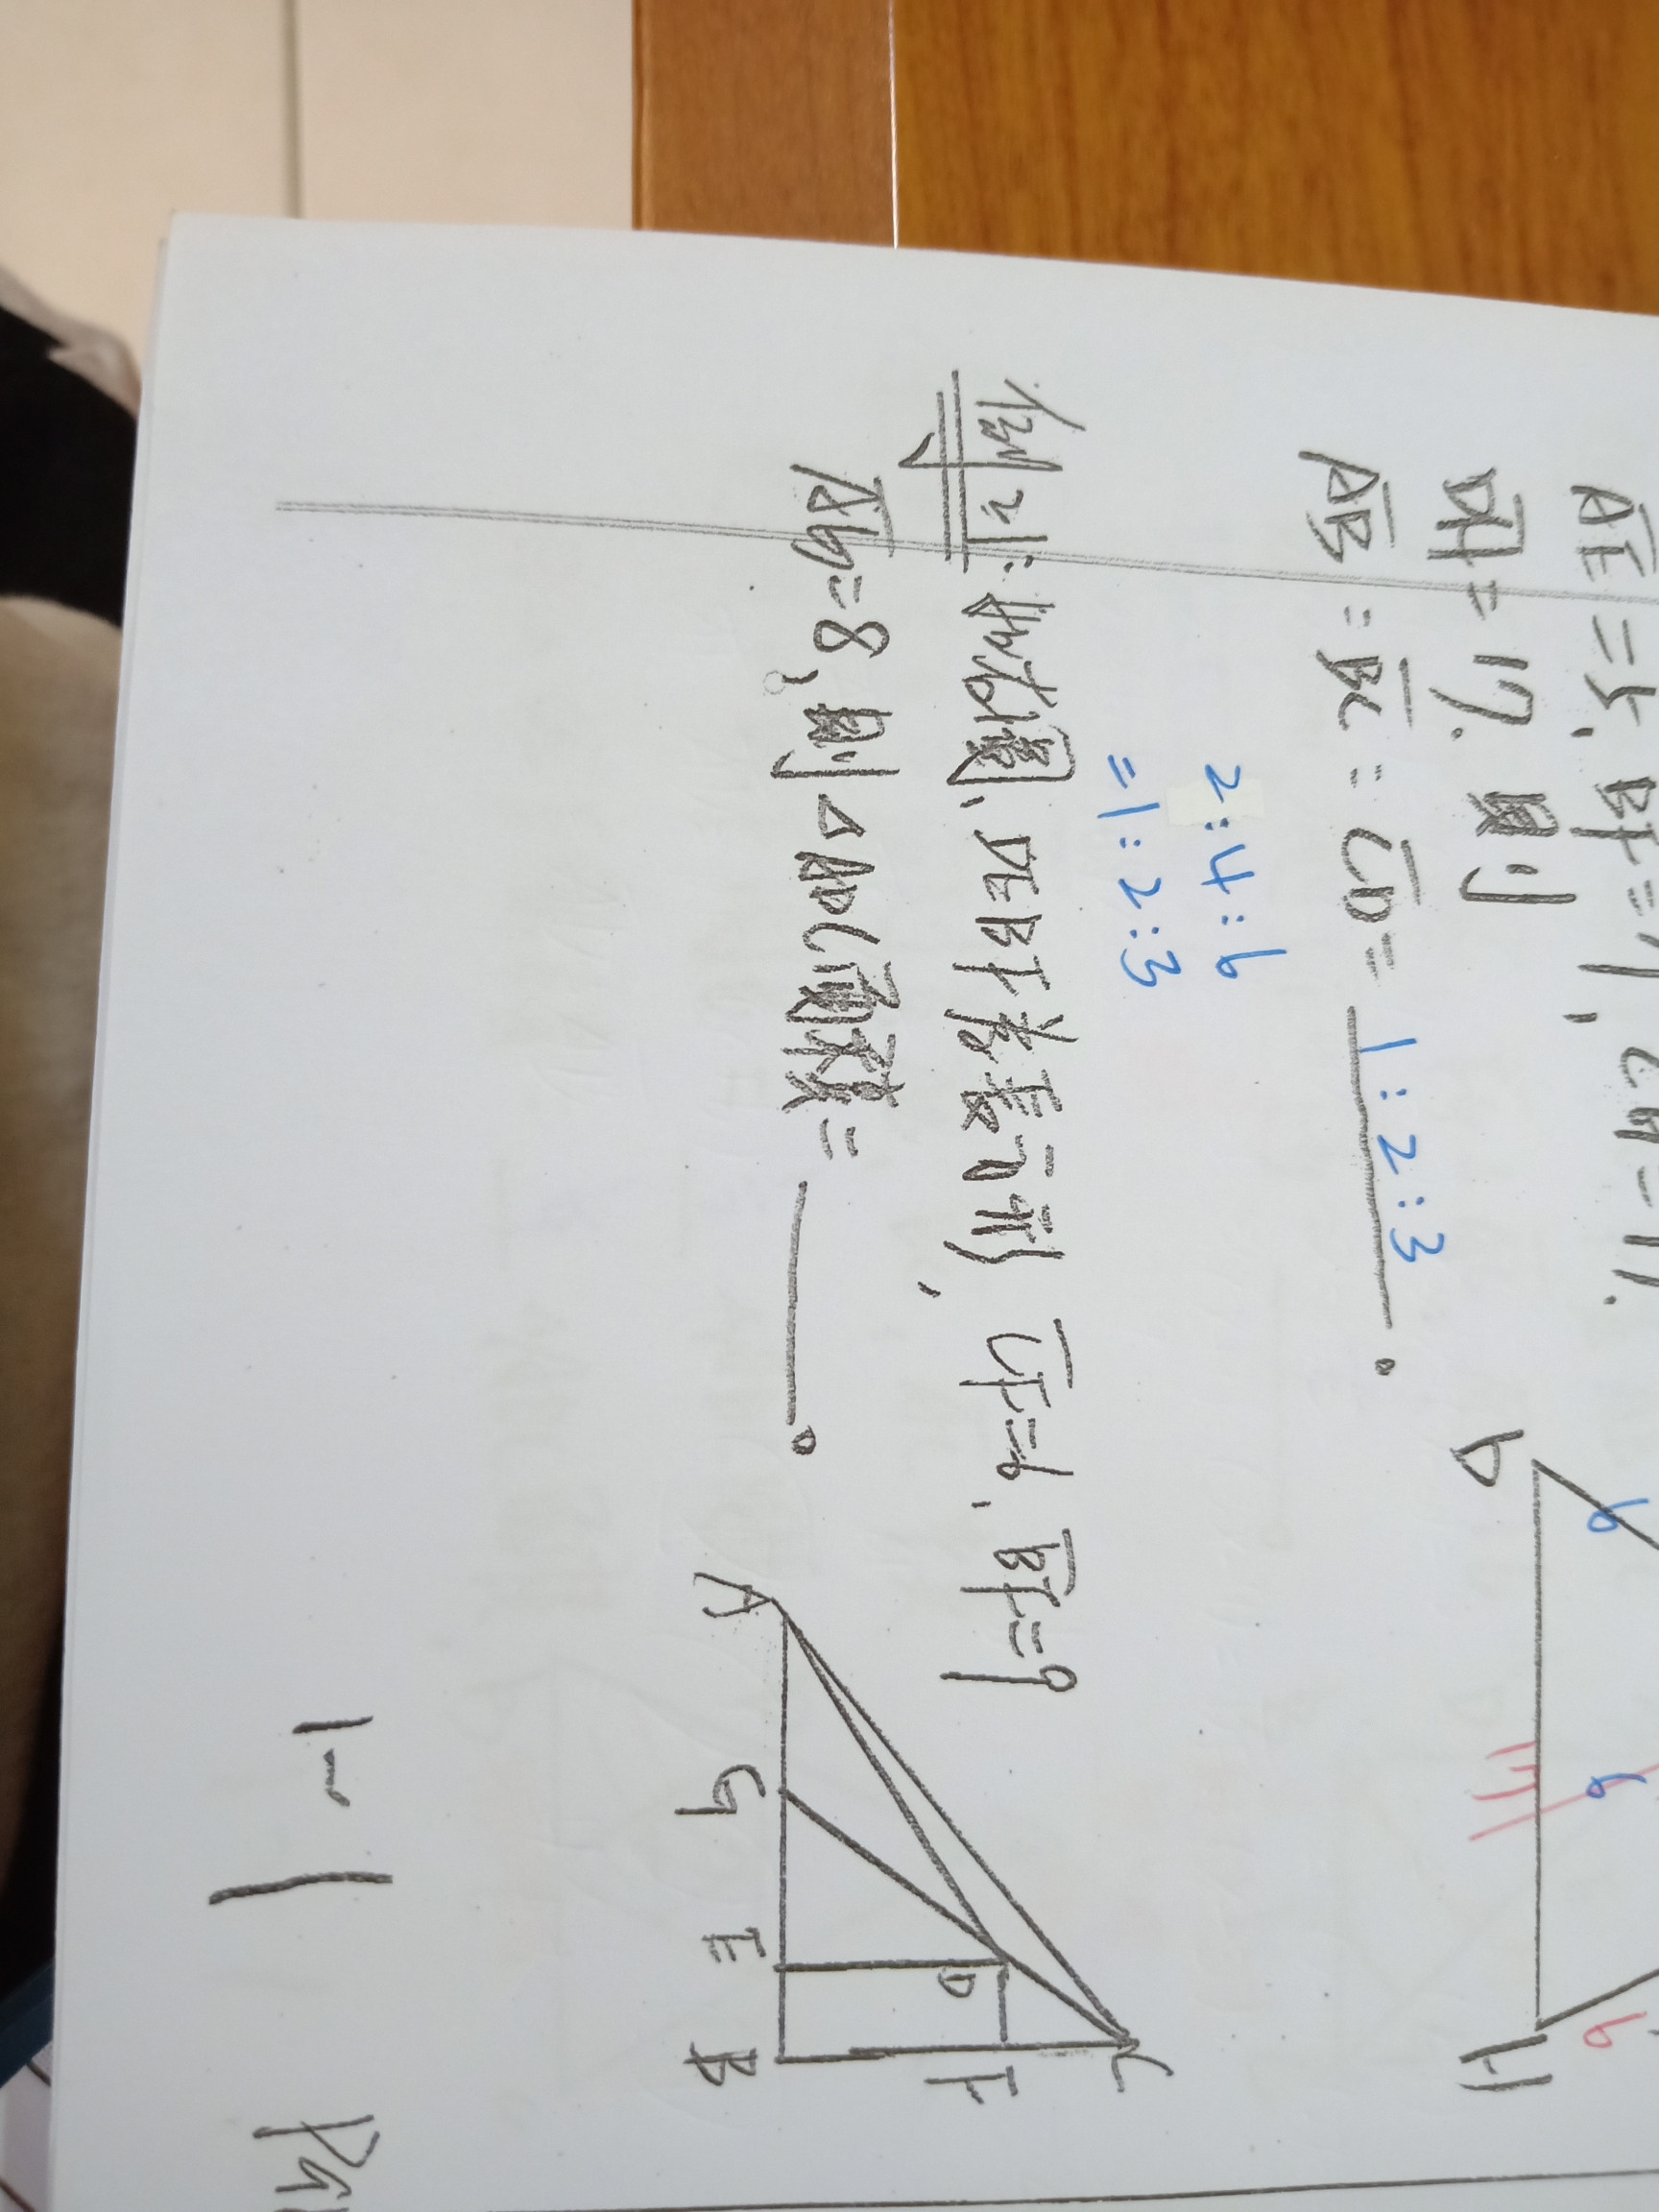 AE=5, BF=7, CG=11.
DH=17. 則
AB:BC:CD= 1:2:3 。
2:4:6
=1:2:3
例12: 如右圖, DEBF為長方形, CF=6, BF=9
AG=8, 則△ADC面積= 。
D
6
6
6
H
A
G
E
B
D
F
C
1-1